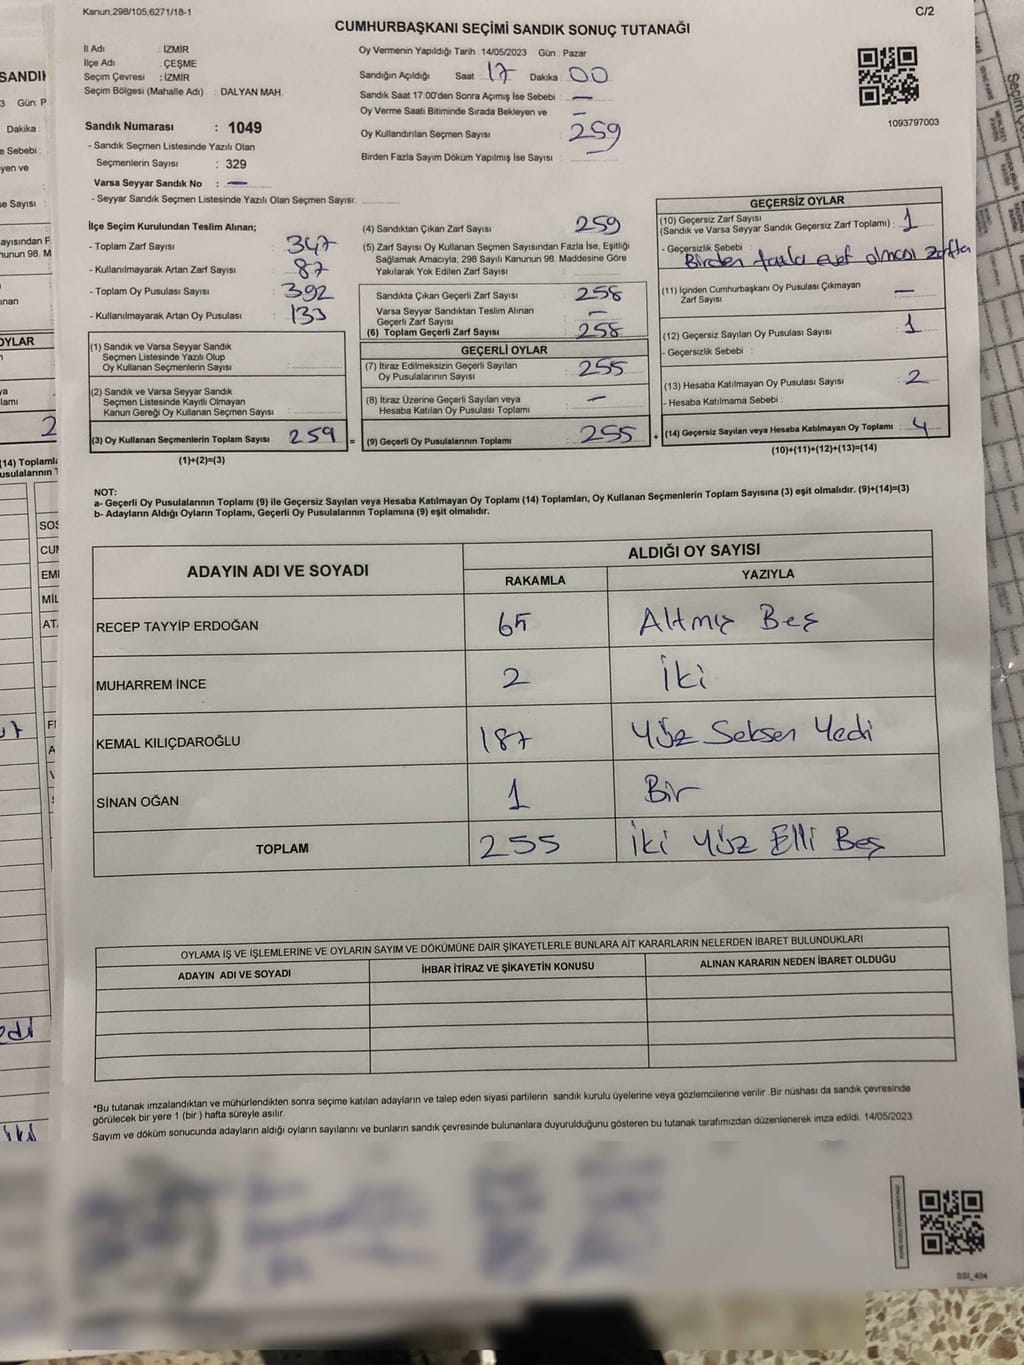 Kanun;298/105,6271/18-1
C/2
CUMHURBAŞKANI SEÇİMİ SANDIK SONUÇ TUTANAĞI
İl Adı : İZMİR
İlçe Adı : ÇEŞME
Seçim Çevresi : İZMİR
Seçim Bölgesi (Mahalle Adı) : DALYAN MAH.
Sandık Numarası : 1049
- Sandık Seçmen Listesinde Yazılı Olan
Seçmenlerin Sayısı : 329
Varsa Seyyar Sandık No : —
- Seyyar Sandık Seçmen Listesinde Yazılı Olan Seçmen Sayısı:
Oy Vermenin Yapıldığı Tarih : 14/05/2023 Gün : Pazar
Sandığın Açıldığı Saat : 17 Dakika : 00
Sandık Saat 17:00'den Sonra Açımış İse Sebebi : —
Oy Verme Saati Bitiminde Sırada Bekleyen ve : —
Oy Kullandırılan Seçmen Sayısı : 259
Birden Fazla Sayım Döküm Yapılmış İse Sayısı :
1093797003
İlçe Seçim Kurulundan Teslim Alınan;
- Toplam Zarf Sayısı : 347
- Kullanılmayarak Artan Zarf Sayısı : 87
- Toplam Oy Pusulası Sayısı : 392
- Kullanılmayarak Artan Oy Pusulası : 133
(1) Sandık ve Varsa Seyyar Sandık
Seçmen Listesinde Yazılı Olup
Oy Kullanan Seçmenlerin Sayısı :
(2) Sandık ve Varsa Seyyar Sandık
Seçmen Listesinde Kayıtlı Olmayan
Kanun Gereği Oy Kullanan Seçmen Sayısı :
(3) Oy Kullanan Seçmenlerin Toplam Sayısı : 259 =
(1)+(2)=(3)
(4) Sandıktan Çıkan Zarf Sayısı : 259
(5) Zarf Sayısı Oy Kullanan Seçmen Sayısından Fazla İse, Eşitliği
Sağlamak Amacıyla; 298 Sayılı Kanunun 98. Maddesine Göre
Yakılarak Yok Edilen Zarf Sayısı :
Sandıkta Çıkan Geçerli Zarf Sayısı : 258
Varsa Seyyar Sandıktan Teslim Alınan
Geçerli Zarf Sayısı : —
(6) Toplam Geçerli Zarf Sayısı : 258
GEÇERLİ OYLAR
(7) İtiraz Edilmeksizin Geçerli Sayılan
Oy Pusulalarının Sayısı : 255
(8) İtiraz Üzerine Geçerli Sayılan veya
Hesaba Katılan Oy Pusulası Toplamı : —
(9) Geçerli Oy Pusulalarının Toplamı : 255 +
GEÇERSİZ OYLAR
(10) Geçersiz Zarf Sayısı
(Sandık ve Varsa Seyyar Sandık Geçersiz Zarf Toplamı) : 1
- Geçersizlik Sebebi :
Birden fazla evet olması zarfta
(11) İçinden Cumhurbaşkanı Oy Pusulası Çıkmayan
Zarf Sayısı : —
(12) Geçersiz Sayılan Oy Pusulası Sayısı : 1
- Geçersizlik Sebebi :
(13) Hesaba Katılmayan Oy Pusulası Sayısı : 2
- Hesaba Katılmama Sebebi :
(14) Geçersiz Sayılan veya Hesaba Katılmayan Oy Toplamı : 4
(10)+(11)+(12)+(13)=(14)
NOT:
a- Geçerli Oy Pusulalarının Toplamı (9) ile Geçersiz Sayılan veya Hesaba Katılmayan Oy Toplamı (14) Toplamları, Oy Kullanan Seçmenlerin Toplam Sayısına (3) eşit olmalıdır. (9)+(14)=(3)
b- Adayların Aldığı Oyların Toplamı, Geçerli Oy Pusulalarının Toplamına (9) eşit olmalıdır.
ADAYIN ADI VE SOYADI
ALDIĞI OY SAYISI
RAKAMLA YAZIYLA
RECEP TAYYİP ERDOĞAN 65 Altmış Beş
MUHARREM İNCE 2 İki
KEMAL KILIÇDAROĞLU 187 Yüz Seksen Yedi
SİNAN OĞAN 1 Bir
TOPLAM 255 İki Yüz Elli Beş
OYLAMA İŞ VE İŞLEMLERİNE VE OYLARIN SAYIM VE DÖKÜMÜNE DAİR ŞİKAYETLERLE BUNLARA AİT KARARLARIN NELERDEN İBARET BULUNDUKLARI
ADAYIN ADI VE SOYADI İHBAR İTİRAZ VE ŞİKAYETİN KONUSU ALINAN KARARIN NEDEN İBARET OLDUĞU
*Bu tutanak imzalandıktan ve mühürlendikten sonra seçime katılan adayların ve talep eden siyasi partilerin sandık kurulu üyelerine veya gözlemcilerine verilir .Bir nüshası da sandık çevresinde
görülecek bir yere 1 (bir ) hafta süreyle asılır.
Sayım ve döküm sonucunda adayların aldığı oyların sayılarını ve bunların sandık çevresinde bulunanlara duyurulduğunu gösteren bu tutanak tarafımızdan düzenlenerek imza edildi. 14/05/2023
SSI_404